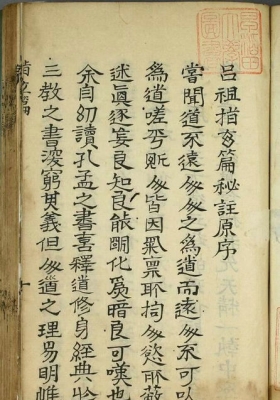 呂祖指玄篇秘註原序
嘗聞道不遠人人之為道而遠人不可以
為道嗟乎斯人皆因氣稟所拘人慾所蔽
迷真逐妄良知良能闇化為暗良可嘆也
余自幼讀孔孟之書喜釋道修身經典於
三教之書深窮其義但人道之理易明惟
指玄篇